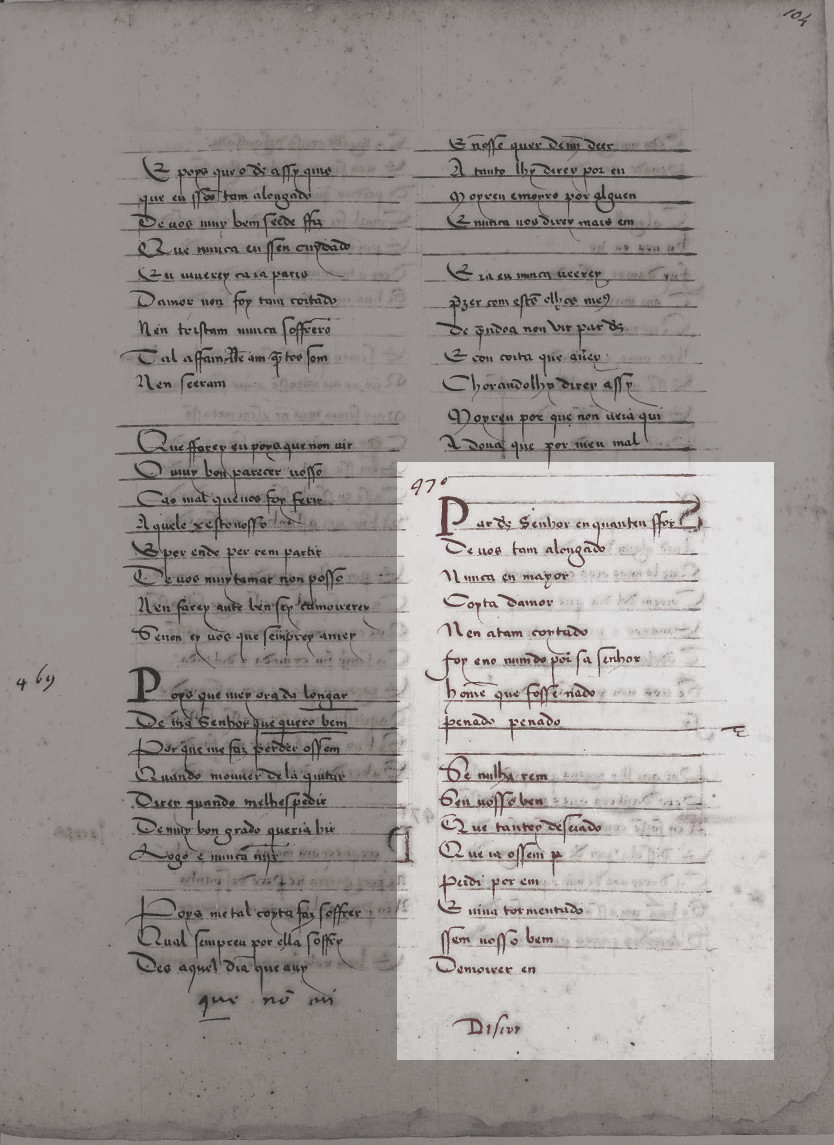 104
E poys que o ds assy quis
que eu ssõo tam alongado
De uos muy bem seede ffiz
Que nunca eu ssen cuydado
Eu uiuerey ca ia paris
Damor non foy tam coitado
Nen tristam nunca soffrerõ
Tal affam nen am quãtos som
Nen seeram
Que ffarey eu poys que non uir
O muy bon parecer uosso
Cao mal que uos foy ferir
Aquele x est o nosso
E por ende per rem partir
De uos muytamar non posso
Nen farey ante ben sey ca moirerey
Senon ey uos que senprey amey
469
Poys que mey ora da longar
De mha Senhor que quero bem
Por que me faz perder o ssem
Quando mouuer dela quitar
Direy quando melhespedir
De muy bon grado queria hir
Logo e nunca uijr
Poys me tal coyta faz soffrer
Qual sempreu por ella soffry
Des aquel dia que a uy
que nõ ui
E nõsse quer de mĩ doer
A tanto lhy direy por en
Moyreu e moyro por alguen
E nunca uos direy mais em
E ia eu nunca ueerey
Pzer com estes olhos me9
De quãdoa non uir par ds
E con coita que auey
Chorando lhy direy assy
Moyreu por que non ueia qui
A dona que por meu mal
470
Par ds Senhor en quanten ffor
De uos tam alongado
Nunca en mayor
Coyta damor
Nen atam coytado
foy eno mundo por sa senhor
home que fosse nado
penado penado
Se nulha rem
Sen uosso ben
Que tantey deseiado
Que ia o ssem p
Perdi por em
E uiuo tormentado
ssem uosso bem
De moirer en